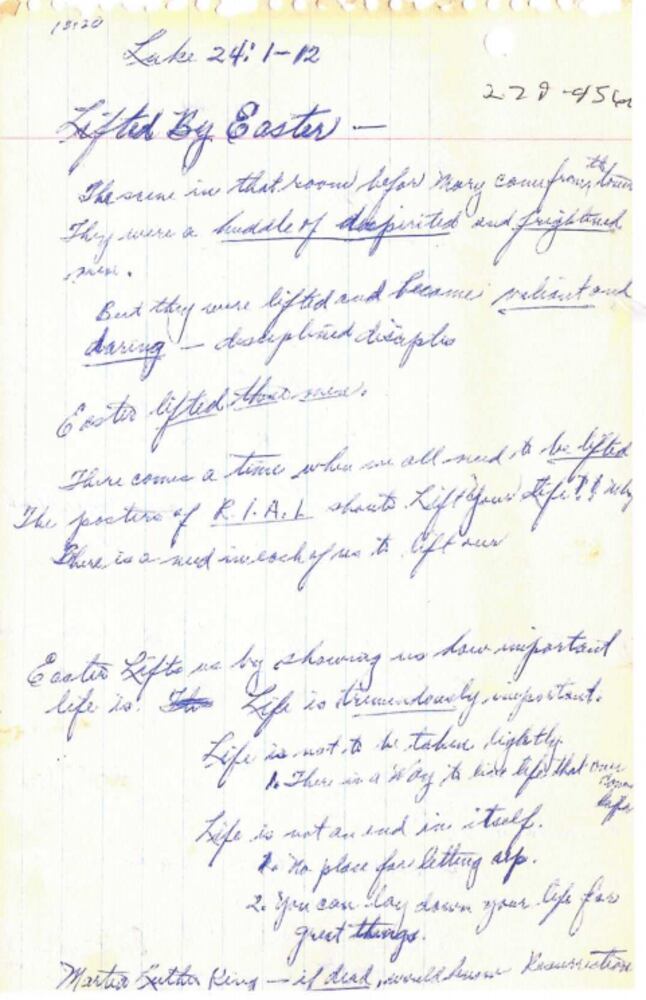 Luke 24: 1-12
Lifted By Easter -
The scene in that room befor Mary come from the tomb
They were a huddle of dispirited and frightened
men.
But they were lifted and became valiant and
daring - disciplined disciples
Easter lifted those men.
There comes a time when we all need to be lifted
The posters of R.I.A.L shouts Lift Your Life!! Why
There is a need in each of us to lift our
Easter Lifts us by showing us how important
life is. The Life is tremendously important.
Life is not to be taken lightly.
1. There is a Way to live life that
Life is not an end in itself.
1. No place for letting up.
2. You can lay down your life for
great things.
Martin Luther King - if dead, would know Resurrection